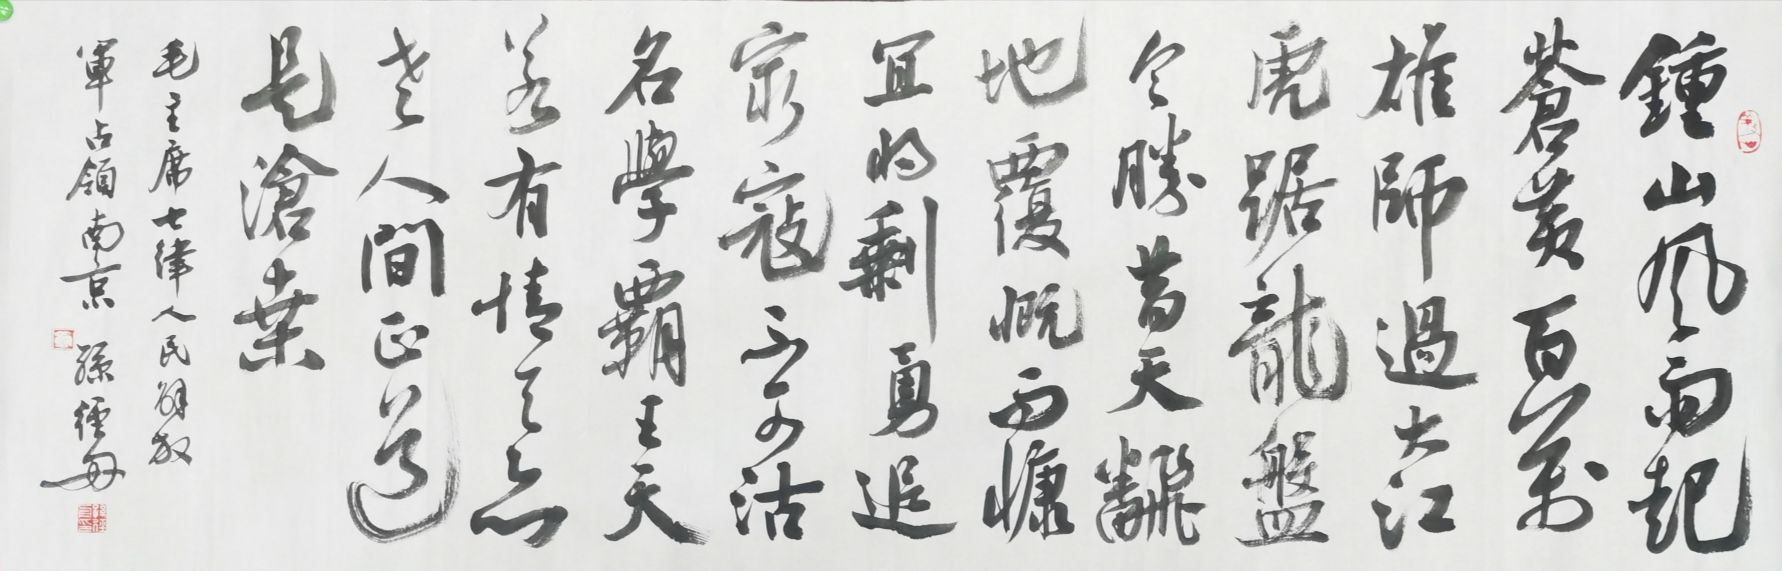 鍾山風雨起
蒼黄百萬
雄師過大江
虎踞龍盤
今勝昔天飜
地覆慨而慷
宜将剩勇追
窮寇不可沽
名學霸王天
若有情天亦
老人間正道
是滄桒
毛主席七律人民解放
軍占領南京 孫